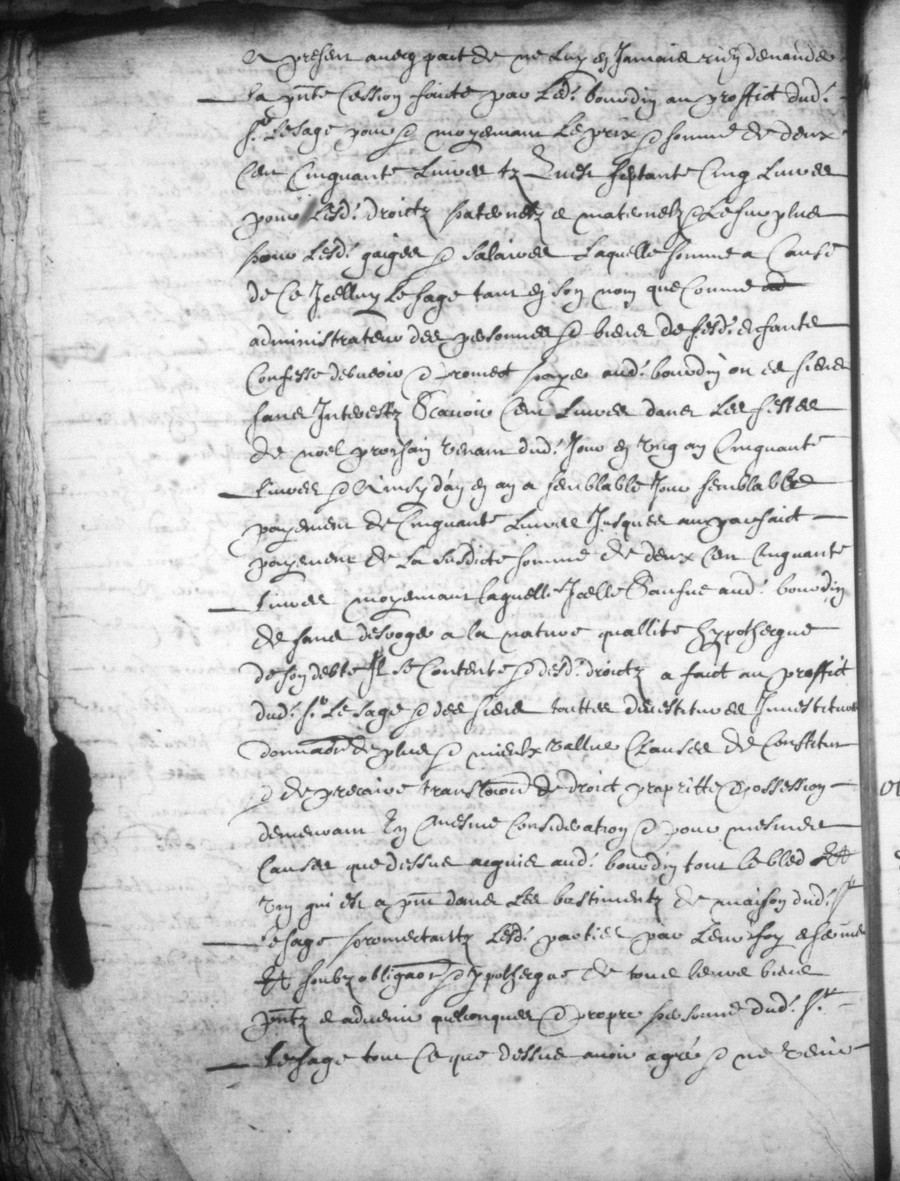 A present avecq pact de ne luy en Jamais rien demander
la pnte Cession faicte par led. bourdin au proffict dud.
sr. Lesage pour & moyenant le prix & somme de deux
Cen Cinquante Livres tz Scavoir septante Cinq Livres
pour lesd. droictz paternelz e maternelz & le surplus
pour lesd. gaiges & salaires Laquelle somme a Cause
de Ce Jcelluy Le sage tant en son nom que Comme
administrateur des personnes & biens de sesd. enfants
Confesse debvoir & promect payer aud. bourdin ou es siens
sans Interestz Scavoir Cen Livres dans les festes
de noel prochain venant dud. Jour en ung an Cinquante
Livres & Ainsy d'an en an a semblable Jour semblable
payement de Cinquante Livres Jusques au parfaict
payement de la susdicte somme de deux Cen Cinquante
Livres moyenant laquelle Jcelle Sausue aud. bourdin
de sans desroger a la nature quallite hypotheque
de son debte Jl se Contente & desd. droictz a faict au proffict
dud. sr. Le sage & des siens touttes devestitures Jnvestitures
donnaon de plus & mieux vallue Clauses de Constitut
& de precaire translaon de droict propritte & possession
demeurant En mesme Consideration & pour mesmes
Causes que dessus acquis aud. bourdin tout le bled &
vin qui est a pnt dans les bastimentz de maison dud. sr
Lesage promectantz lesd. parties par leur foy e serment
& soubz obligaon & hypotheque de tous leurs biens
pntz e advenir quelconques & propre personne dud. sr.
Lesage tout Ce que dessus avoir agre & ne venir